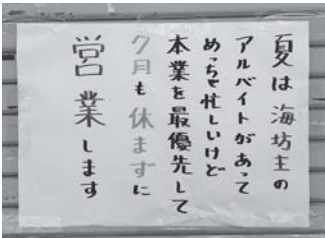 夏は海坊主の
アルバイトがあって
めっちゃ忙しいけど
本業を最優先して
7月も休まずに
営業します